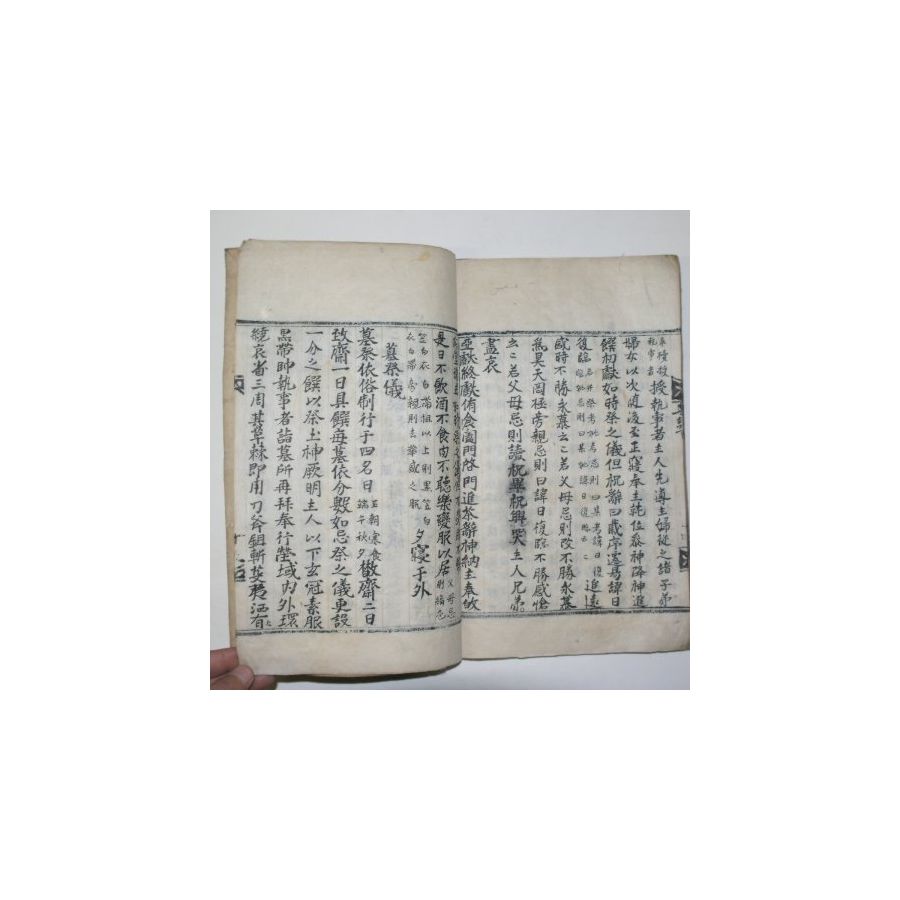 授執事者主人先導主婦從之諸子弟
婦女以次隨後至正寢奉主就位參神降神進
饌初獻如時祭之儀但祝辭曰歲序遷易諱日
復臨 追遠
感時不勝永慕云云若父母忌則改不勝永慕
爲昊天罔極旁親忌則曰諱日復臨不勝感愴
云云若父母忌則讀祝畢祝興哭主人兄弟
盡哀
亞獻終獻侑食闔門啓門進茶辭神納主奉
是日不飮酒不食肉不聽樂變服以居
夕寢于外
墓祭儀
墓祭依俗制行于四名日 正朝寒食端午秋夕 散齋二日
致齋一日具饌每墓依分數如忌祭之儀更設
一分之饌以祭土神厥明主人以下玄冠素服
黑帶帥執事者詣墓所再拜奉行塋域內外環
繞哀省三周其草棘卽用刀斧鉏斬芟夷洒